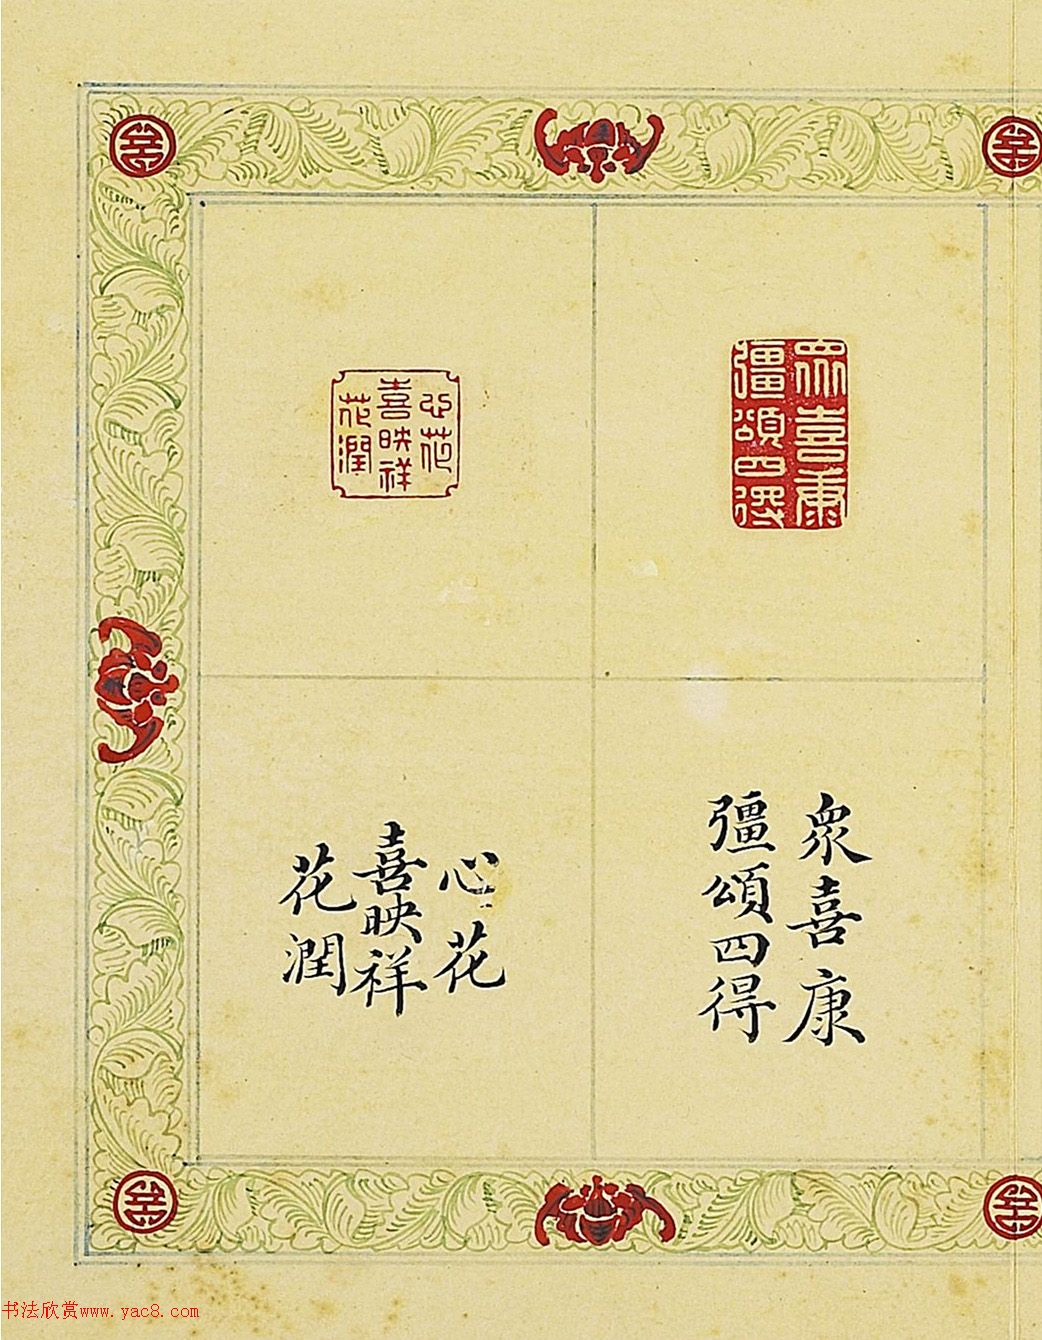 眾喜康
彊頌四得
心花
喜映祥
花潤
眾喜康
彊頌四得
心花
喜映祥
花潤
书法欣赏www.yac8.com